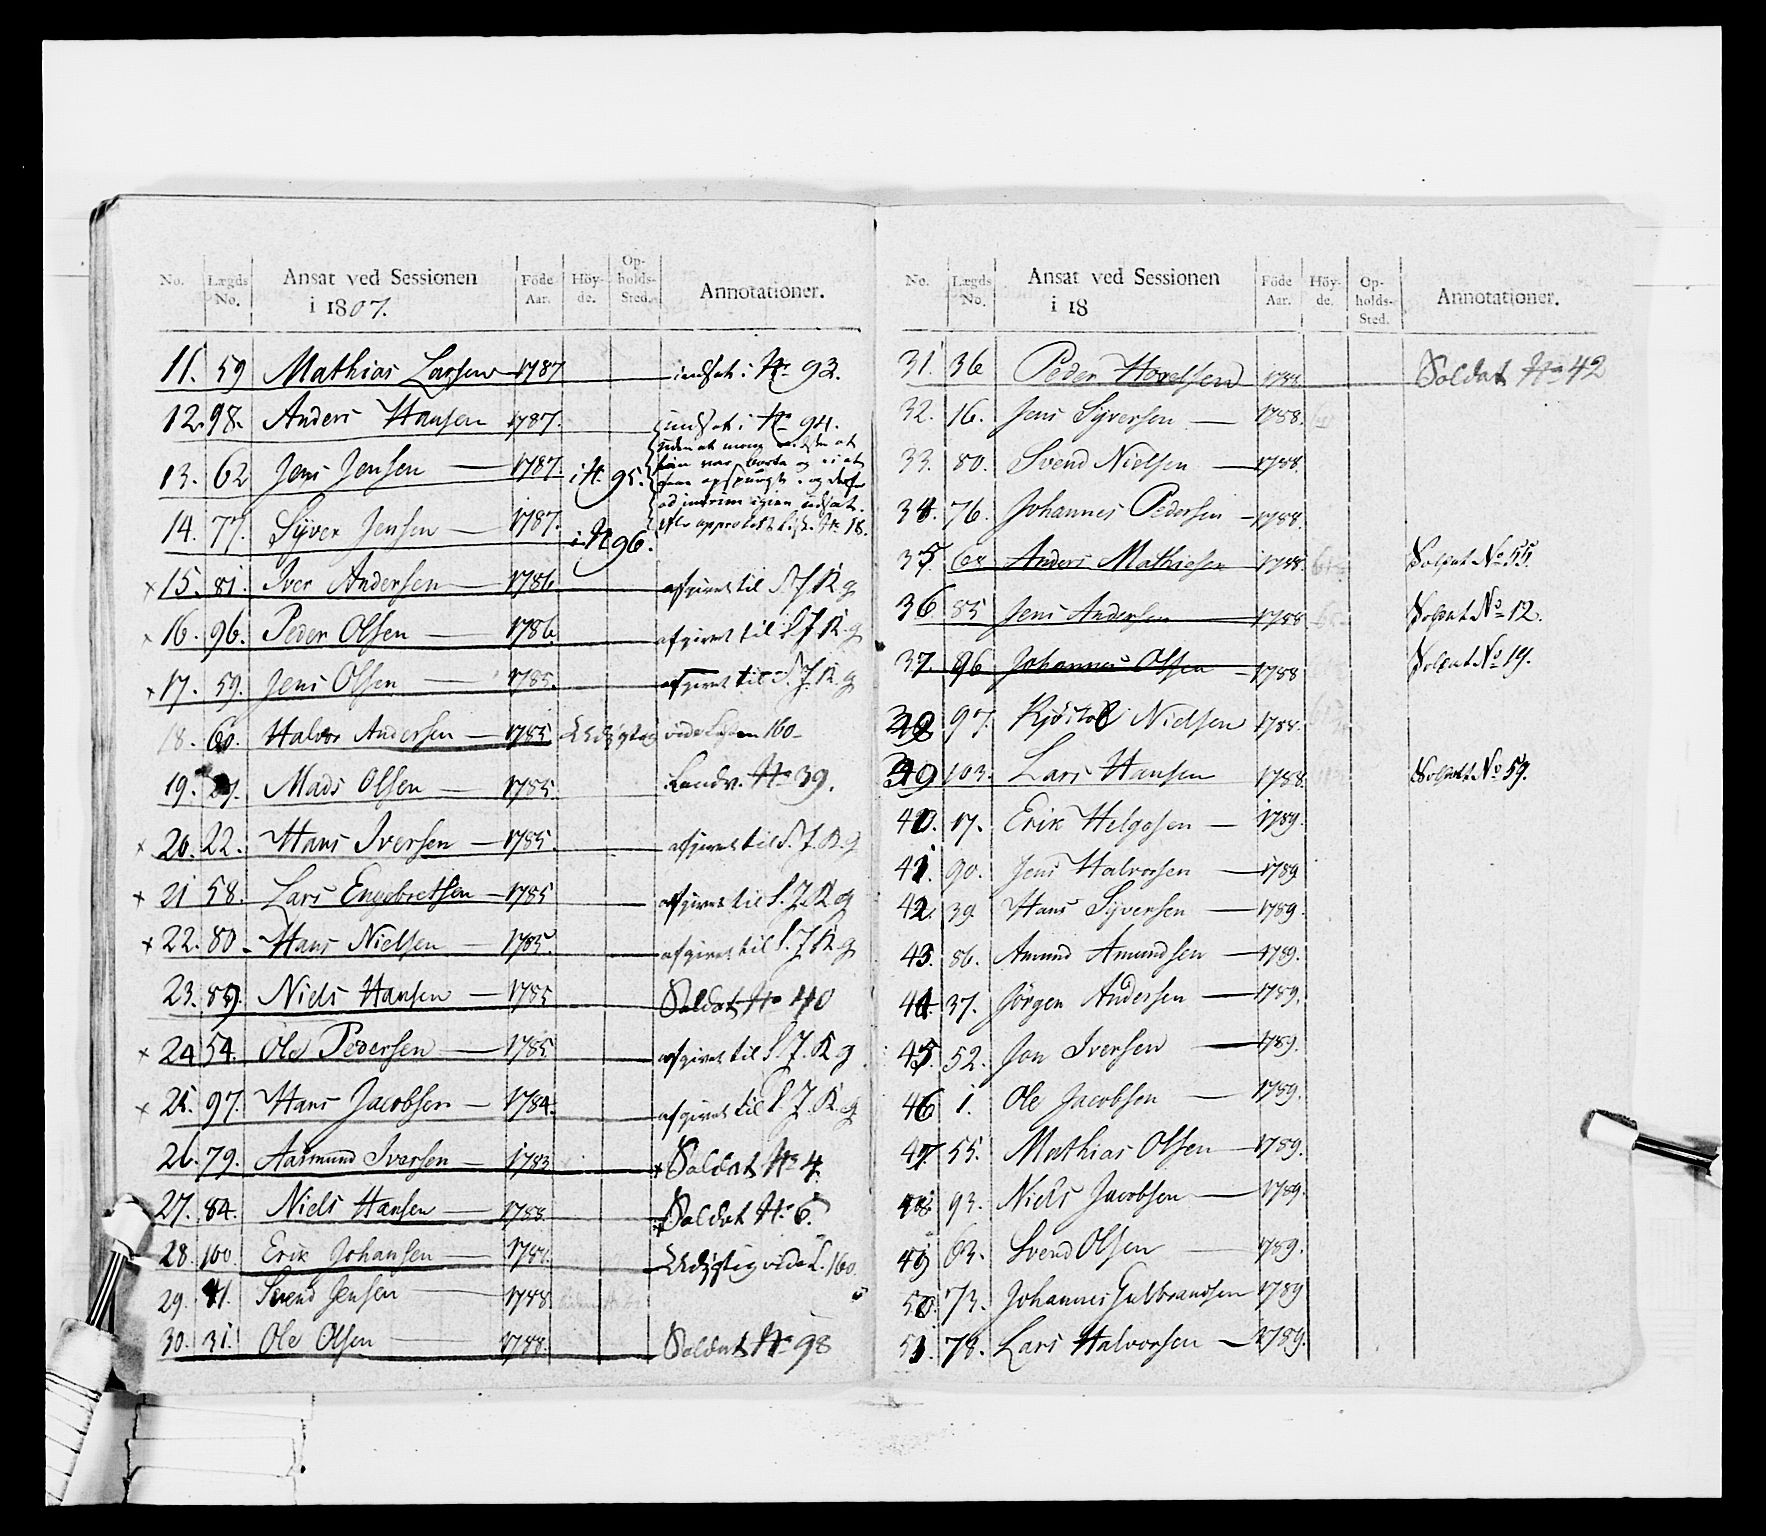 No. Lægds No. Ansat ved Sessionen i 1807. Föde Aar. Höy-de. Op-holds-Sted. Annotationer.
11. 59 Mathias Larsen 1787 indsat i No 93.
12. 98. Anders Hansen 1787. indsat i No 94.
13. 62 Jens Jensen — 1787. i N. 95.
14. 77. Syver Jensen — 1787. i N 96.
× 15. 81. Iver Andersen — 1786 afgivet til S. J. R. g
× 16. 96. Peder Olsen — 1786 afgivet til S. J. R. g
× 17. 59. Jens Olsen — 1785. afgivet til S. J. R. g
18. 60. Halvor Andersen — 1785 Udygtig vide 160
19. Mads Olsen — 1785. Landv. No 39.
× 20. 22. Hans Iversen — 1785. afgivet til S. J. R. g
× 21 58. Lars Engebretsen — 1785 afgivet til S. J. R. g
× 22. 80. Hans Nielsen — 1785. afgivet til S. J. R. g
23. 89. Niels Hansen — 1785 Soldat No 40
× 24 54. Ole Pedersen — 1785 afgivet til S. J. R. g
× 25. 97. Hans Jacobsen — 1784. afgivet til S. J. R. g
26. 79. Aasmund Iversen — 1783 × Soldat No 4.
27. 84. Niels Hansen — 1788 Soldat No 6.
28. 100 Erik Johansen — 1788. Udygtig vide L. 160.
29. 41. Svend Jensen — 1788
30. 31. Ole Olsen — 1788. Soldat No 98
No. Lægds No. Ansat ved Sessionen i 18 Föde Aar. Höy-de. Op-holds-Sted. Annotationer.
31. 36 Peder Hovelsen 1788 Soldat No 42
32. 16. Jens Syversen — 1788.
33. 80. Svend Nielsen — 1788.
34. 76. Johannes Pedersen — 1788.
35 Anders Mathiesen 1788. Soldat No 55.
36. 85 Jens Andersen 1788 Soldat No 12.
37. 96 Johannes Olsen — 1788 Soldat No 19.
38 97. Nielsen 1788.
39 103. Lars Hansen 1788. Soldat No 59.
40. 17. Erik Helgesen — 1789.
41. 90. Jens Halvorsen — 1789
42. 39. Hans Syversen — 1789.
43. 86. Amund Amundsen — 1789.
44. 37. Jørgen Andersen — 1789.
45. 52. Jon Iversen — 1789.
46 1. Ole Jacobsen — 1789.
47. 55. Mathias Olsen — 1789.
48. 93. Niels Jacobsen — 1789.
49 83. Svend Olsen — 1789.
50. 73. Johannes Gulbrandsen 1789
51. 78. Lars Halvorsen — 1789.